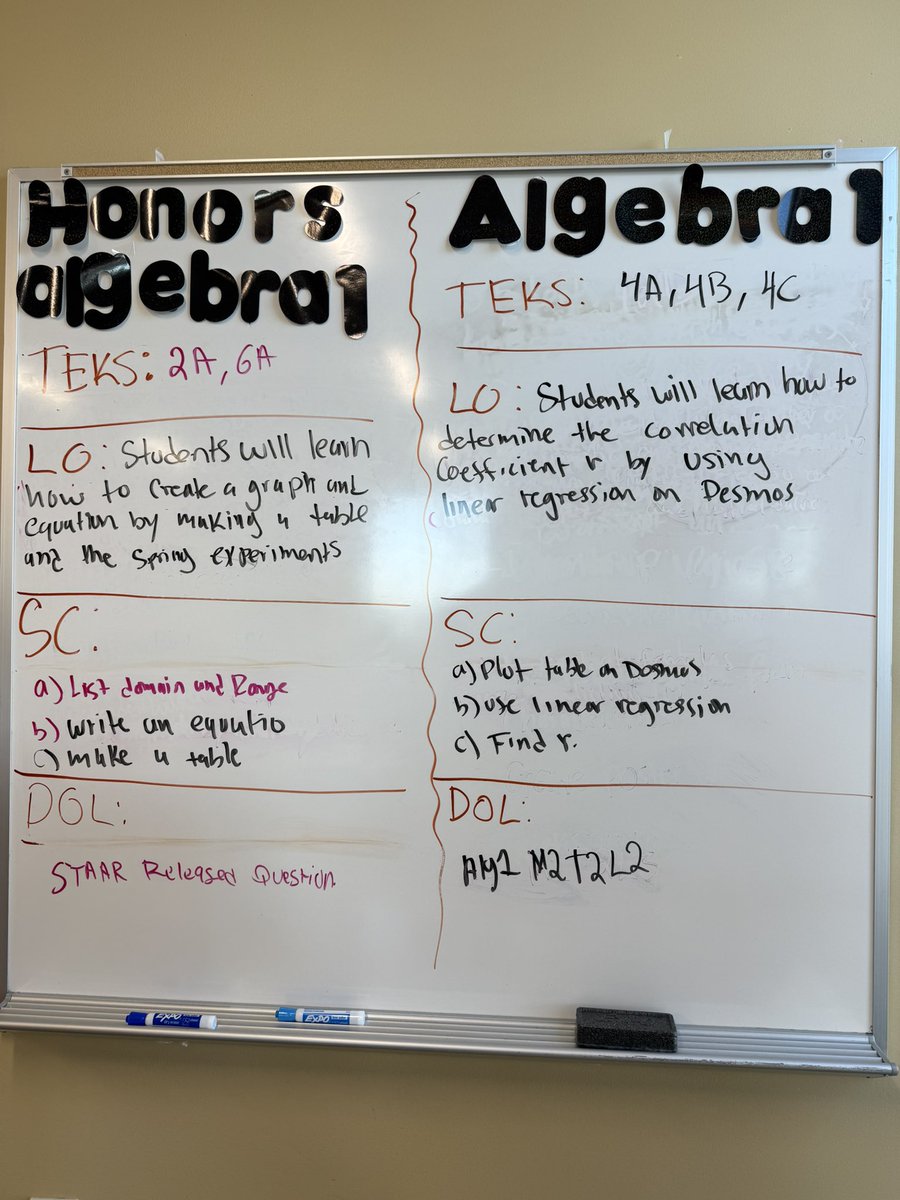 Honors
algebra1
TEKS: 2A, 6A
LO: Students will learn
how to create a graph and
equation by making a table
and the Spring experiments
SC:
a) List domain and Range
b) write an equatio
c) make a table
DOL:
STAAR Released Question
Algebra1
TEKS: 4A, 4B, 4C
LO: Students will learn how to
determine the correlation
Coefficient r by using
linear regression on Desmos
SC:
a) Plot table on Desmos
b) use linear regression
c) Find r.
DOL:
Alg1 M2T2L2
EXPO
EXPO